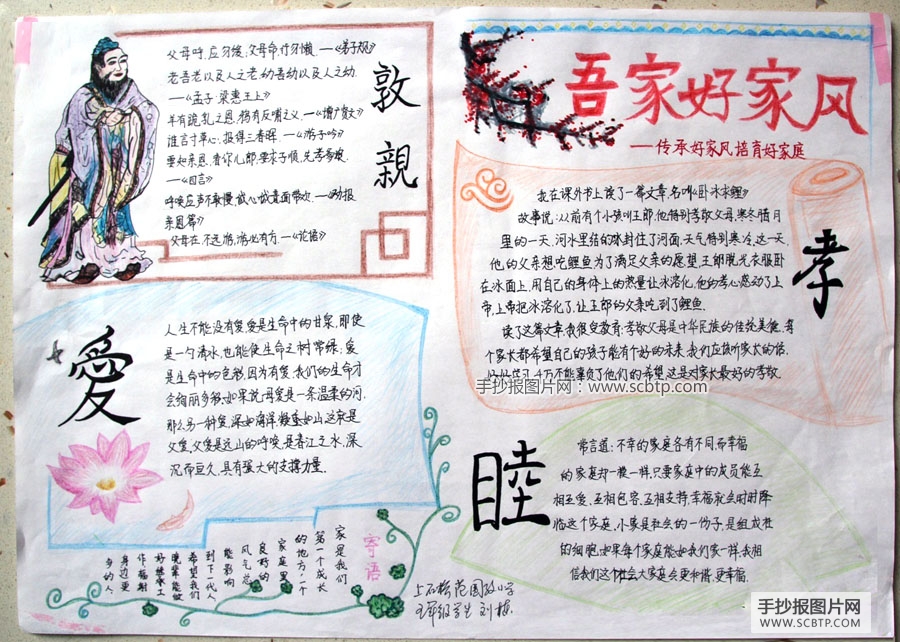 父母呼,应勿缓,父母命,行勿懒.—《弟子规》
老吾老以及人之老,幼吾幼以及人之幼.
—《孟子·梁惠王上》
羊有跪乳之恩,鸦有反哺之义.—《增广贤文》
谁言寸草心,报得三春晖.—《游子吟》
要知亲恩,看你儿郎,要求子顺,先孝爹娘.
—《四言》
呼唤应声不敢慢,诚心诚意面带欢.—《劝报
亲恩篇》
父母在,不远游,游必有方.—《论语》
敦
親
吾家好家风
—传承好家风培育好家庭
我在课外书上读了一篇文章,名叫《卧冰求鲤》
故事说:从前有个小孩叫王郎,他特别孝敬父母,寒冬腊月
里的一天,河水里结的冰封住了河面,天气特别寒冷,这一天,
他的父亲想吃鲤鱼为了满足父亲的愿望,王郎脱光衣服卧
在冰面上,用自己的身体上的热量让冰溶化,他的孝心感动了上
帝,上帝把冰溶化了,让王郎的父亲吃到了鲤鱼.
读了这篇文章,我很受教育,孝敬父母是中华民族的传统美德,每
个家长都希望自己的孩子能有个好的未来,我们应该听家长的话,
好好学习,千万不能辜负了他们的希望,这是对家长最好的孝敬.
孝
手抄报图片网:www.scbtp.com
愛
人生不能没有爱,爱是生命中的甘泉,即使
是一勺清水,也能使生命之树常绿;爱
是生命中的色彩,因为有爱,我们的生命才
会绚丽多彩,如果说母爱是一条温柔的河,
那么另一种爱,深如海洋,凝重如山,这就是
父爱,父爱是远山的呼唤,是春江之水,深
沉而亘久,具有强大的支撑力量.
睦
常言道:不幸的家庭各有不同,而幸福
的家庭却一模一样,只要家庭中的成员能互
相互爱,互相包容,互相支持,幸福就会时时降
临这个家庭,小家是社会的一份子,是组成社
的细胞,如果每个家庭能如我们家一样,我相
信我们这个社会大家庭会更和谐,更幸福.
寄语
家是我们
第一个成长
的地方,一个
家庭里
良好的
风气总
能影响
到下一代人
希望我们
晚辈能做
好继承工
作,福射
身边更
多的人.
上石桥范园孜小学
五年级学生 刘
手抄报图片网
WWW.SCBTP.COM